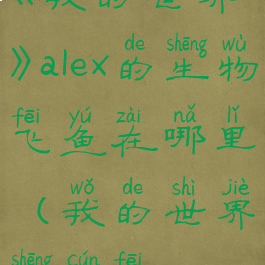 《我的世界
de shēng wù
》alex的生物
fēi yú zài nǎ lǐ
飞鱼在哪里
wǒ de shì jiè
（我的世界
shēng cún fēi